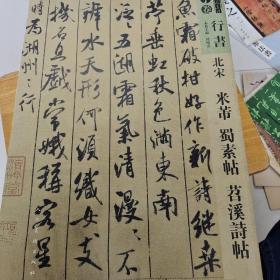 行書
北宋 米芾 蜀素帖 苕溪詩帖
魚霜破柑好作新詩繼桑
苧垂虹秋色滿東南
泛〻五湖霜氣清漫〻不
辨水天形何須織女支
機石且戲常娥稱客星
時為湖州之行